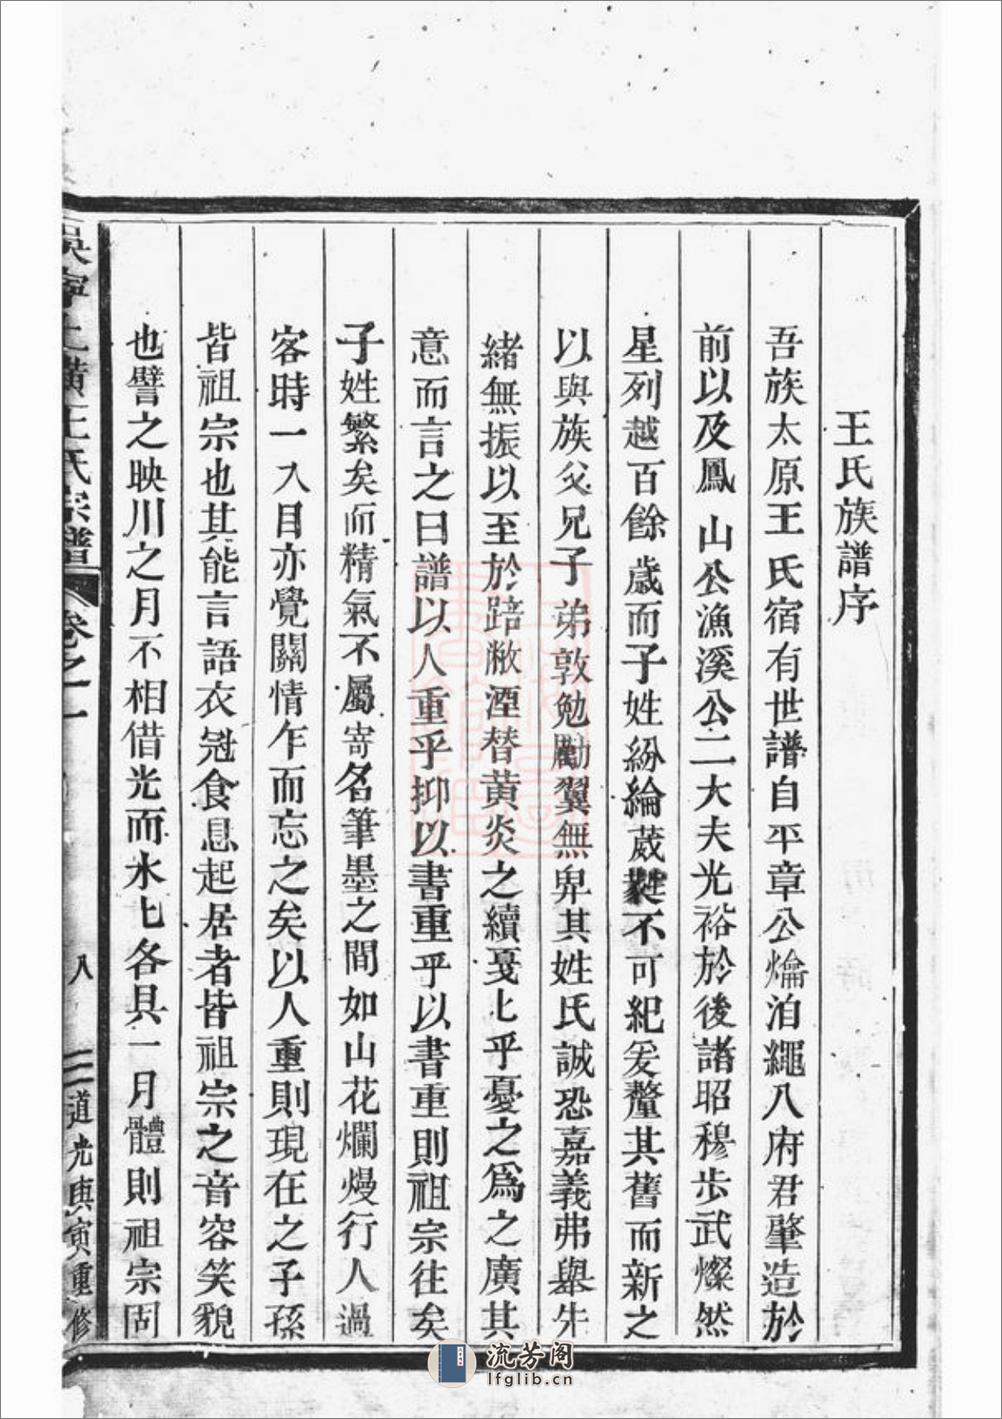 王氏族譜序
吾族太原王氏宿有世譜自平章公爚洎繩八府君肇造於
前以及鳳山公漁溪公二大夫光裕於後諸昭穆步武燦然
星列越百餘歲而子姓紛綸葳蕤不可紀爰釐其舊而新之
以與族父兄子弟敦勉勵翼無卑其姓氏誠恐嘉義弗舉先
緒無振以至於踣敝湮替黄炎之續戞匕乎憂之爲之廣其
意而言之曰譜以人重乎抑以書重乎以書重則祖宗徃矣
子姓繁矣而精氣不屬寄名筆墨之間如山花爛熳行人過
客時一入目亦覺關情乍而忘之矣以人重則現在之子孫
皆祖宗也其能言語衣冠食息起居者皆祖宗之音容笑貌
也譬之映川之月不相借光而水匕各具一月體則祖宗固
吳寧上璜王氏宗譜 卷之一 八 三 道光庚寅重修
流芳阁
lfglib.cn